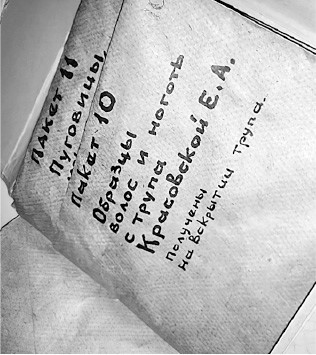 Пакет 11
Пуговицы,
Пакет 10
Образцы
волос и ноготь
с трупа
Красовской Е.А.
Получены
на вскрытии трупа.